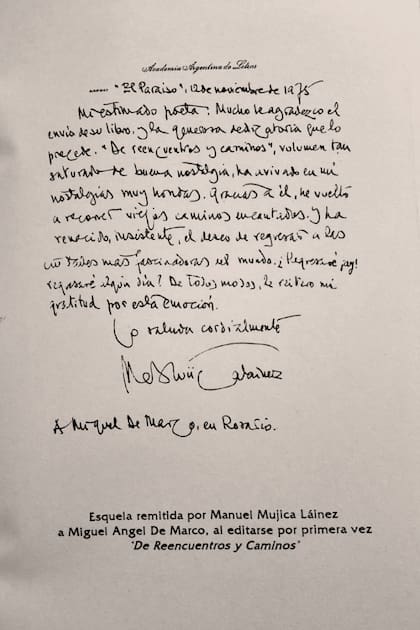 Academia Argentina de Letras
"El Paraíso", 12 de noviembre de 1975
Mi estimado poeta: Mucho le agradezco el
envío de su libro, y la generosa dedicatoria que lo
precede. "De reencuentros y caminos", volumen tan
saturado de buena nostalgia, ha avivado en mí
nostalgias muy hondas. Gracias a él, he vuelto
a recorrer viejos caminos encantados. Y ha
renacido, insistente, el deseo de regresar a las
ciudades más fascinadoras del mundo. ¿Regresaré ¡ay!
regresaré algún día? De todos modos, le reitero mi
gratitud por esta emoción.
Lo saluda cordialmente
A Miguel De Marco, en Rosario.
Esquela remitida por Manuel Mujica Láinez
a Miguel Angel De Marco, al editarse por primera vez
'De Reencuentros y Caminos'